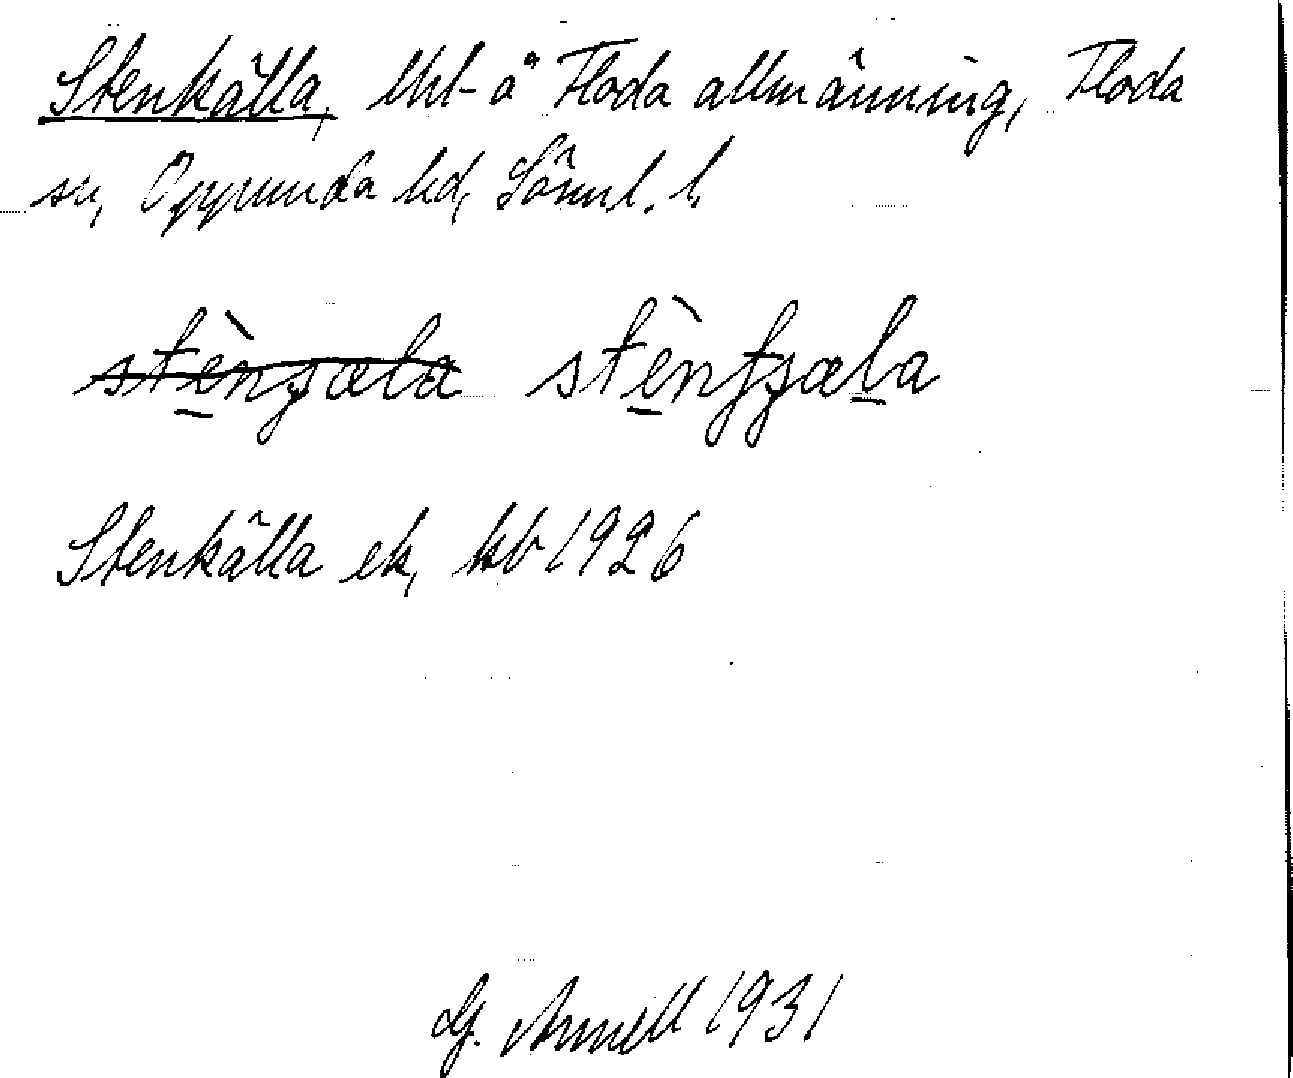 Stenkälla, lht å Floda allmänning, Floda
sn, Oppunda hd, Söml. l.
stèngæla stèntjæla
Stenkälla ek, kb 1926
G. Annell 1931